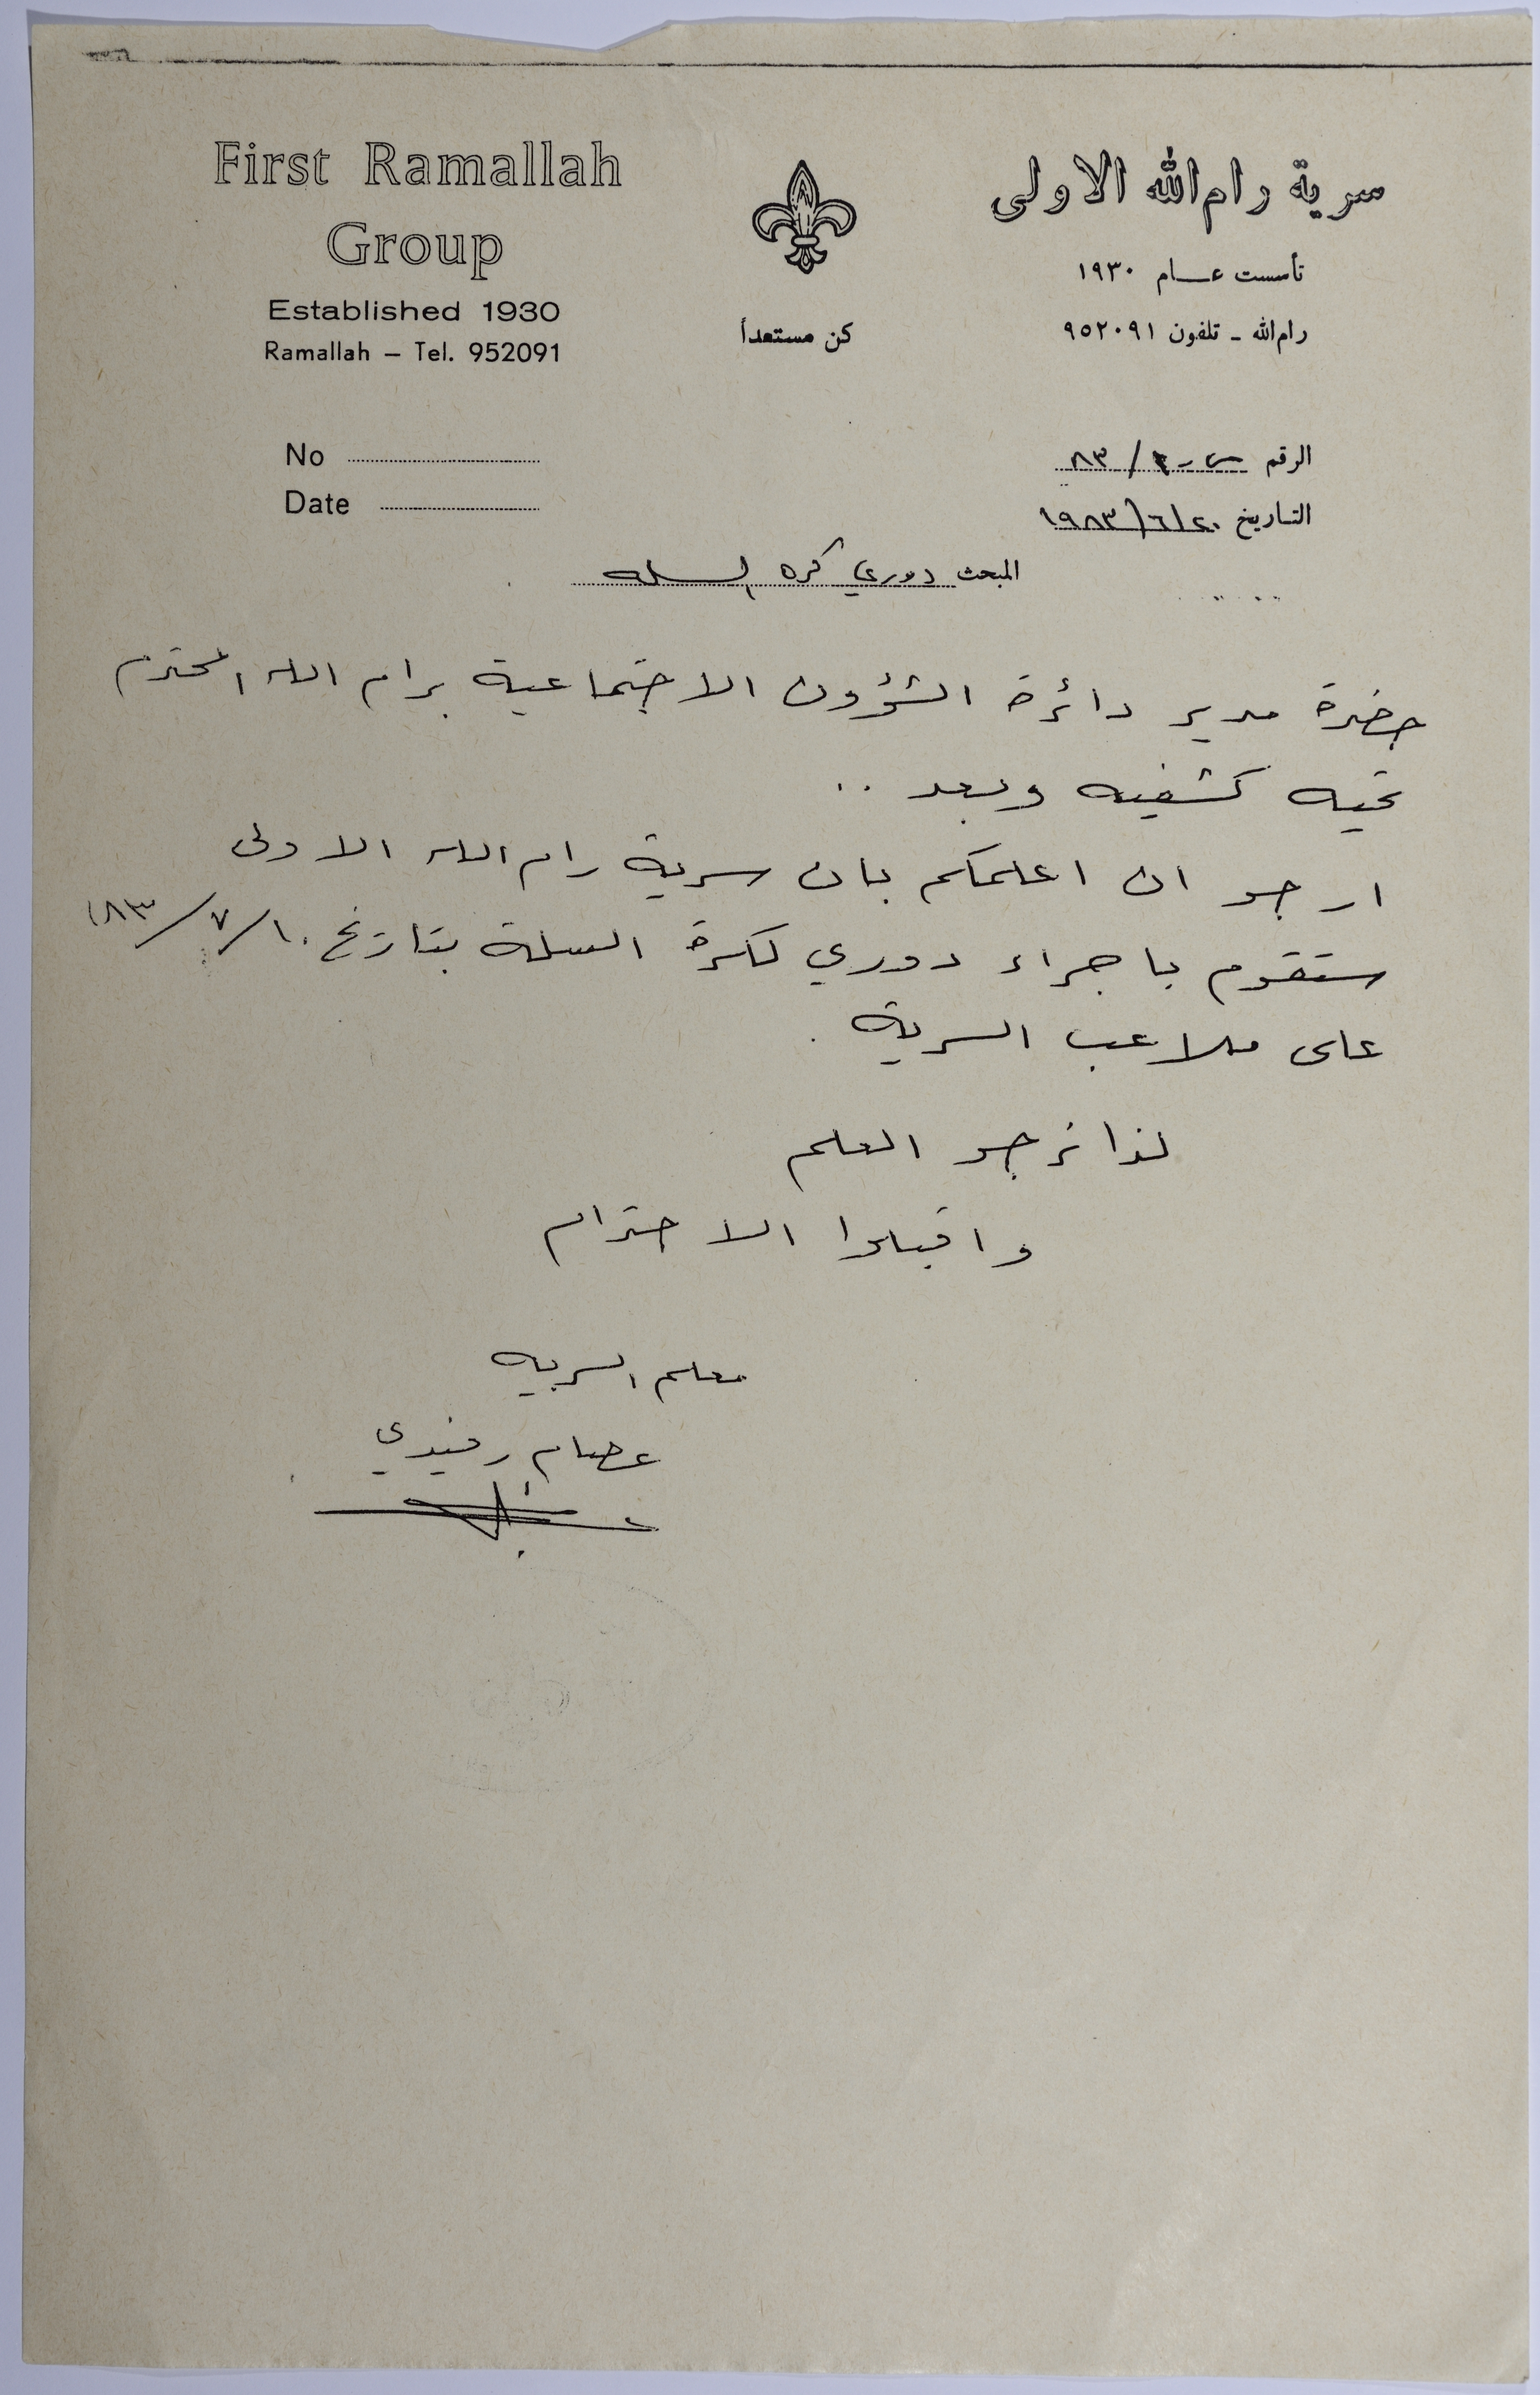 First Ramallah
Group
Established 1930
Ramallah – Tel. 952091
سرية رام الله الاولى
تأسست عام ١٩٣٠
رام الله - تلفون ٩٥٢٠٩١
كن مستعداً
No
Date
الرقم ٨٣/
التاريخ ١٩٨٣/٦/٢٠
المبحث دوري كره السله
حضرة مدير دائرة الشؤون الاجتماعية برام الله المحترم
تحيه كشفيه وبعد ..
ارجو ان اعلمكم بان سرية رام الله الاولى
ستقوم باجراء دوري لكرة السلة بتاريخ ٨٣/٧/١٠
على ملاعب السرية .
لذا نرجو العلم
واقبلوا الاحترام
معلم السريه
عصام رفيدي